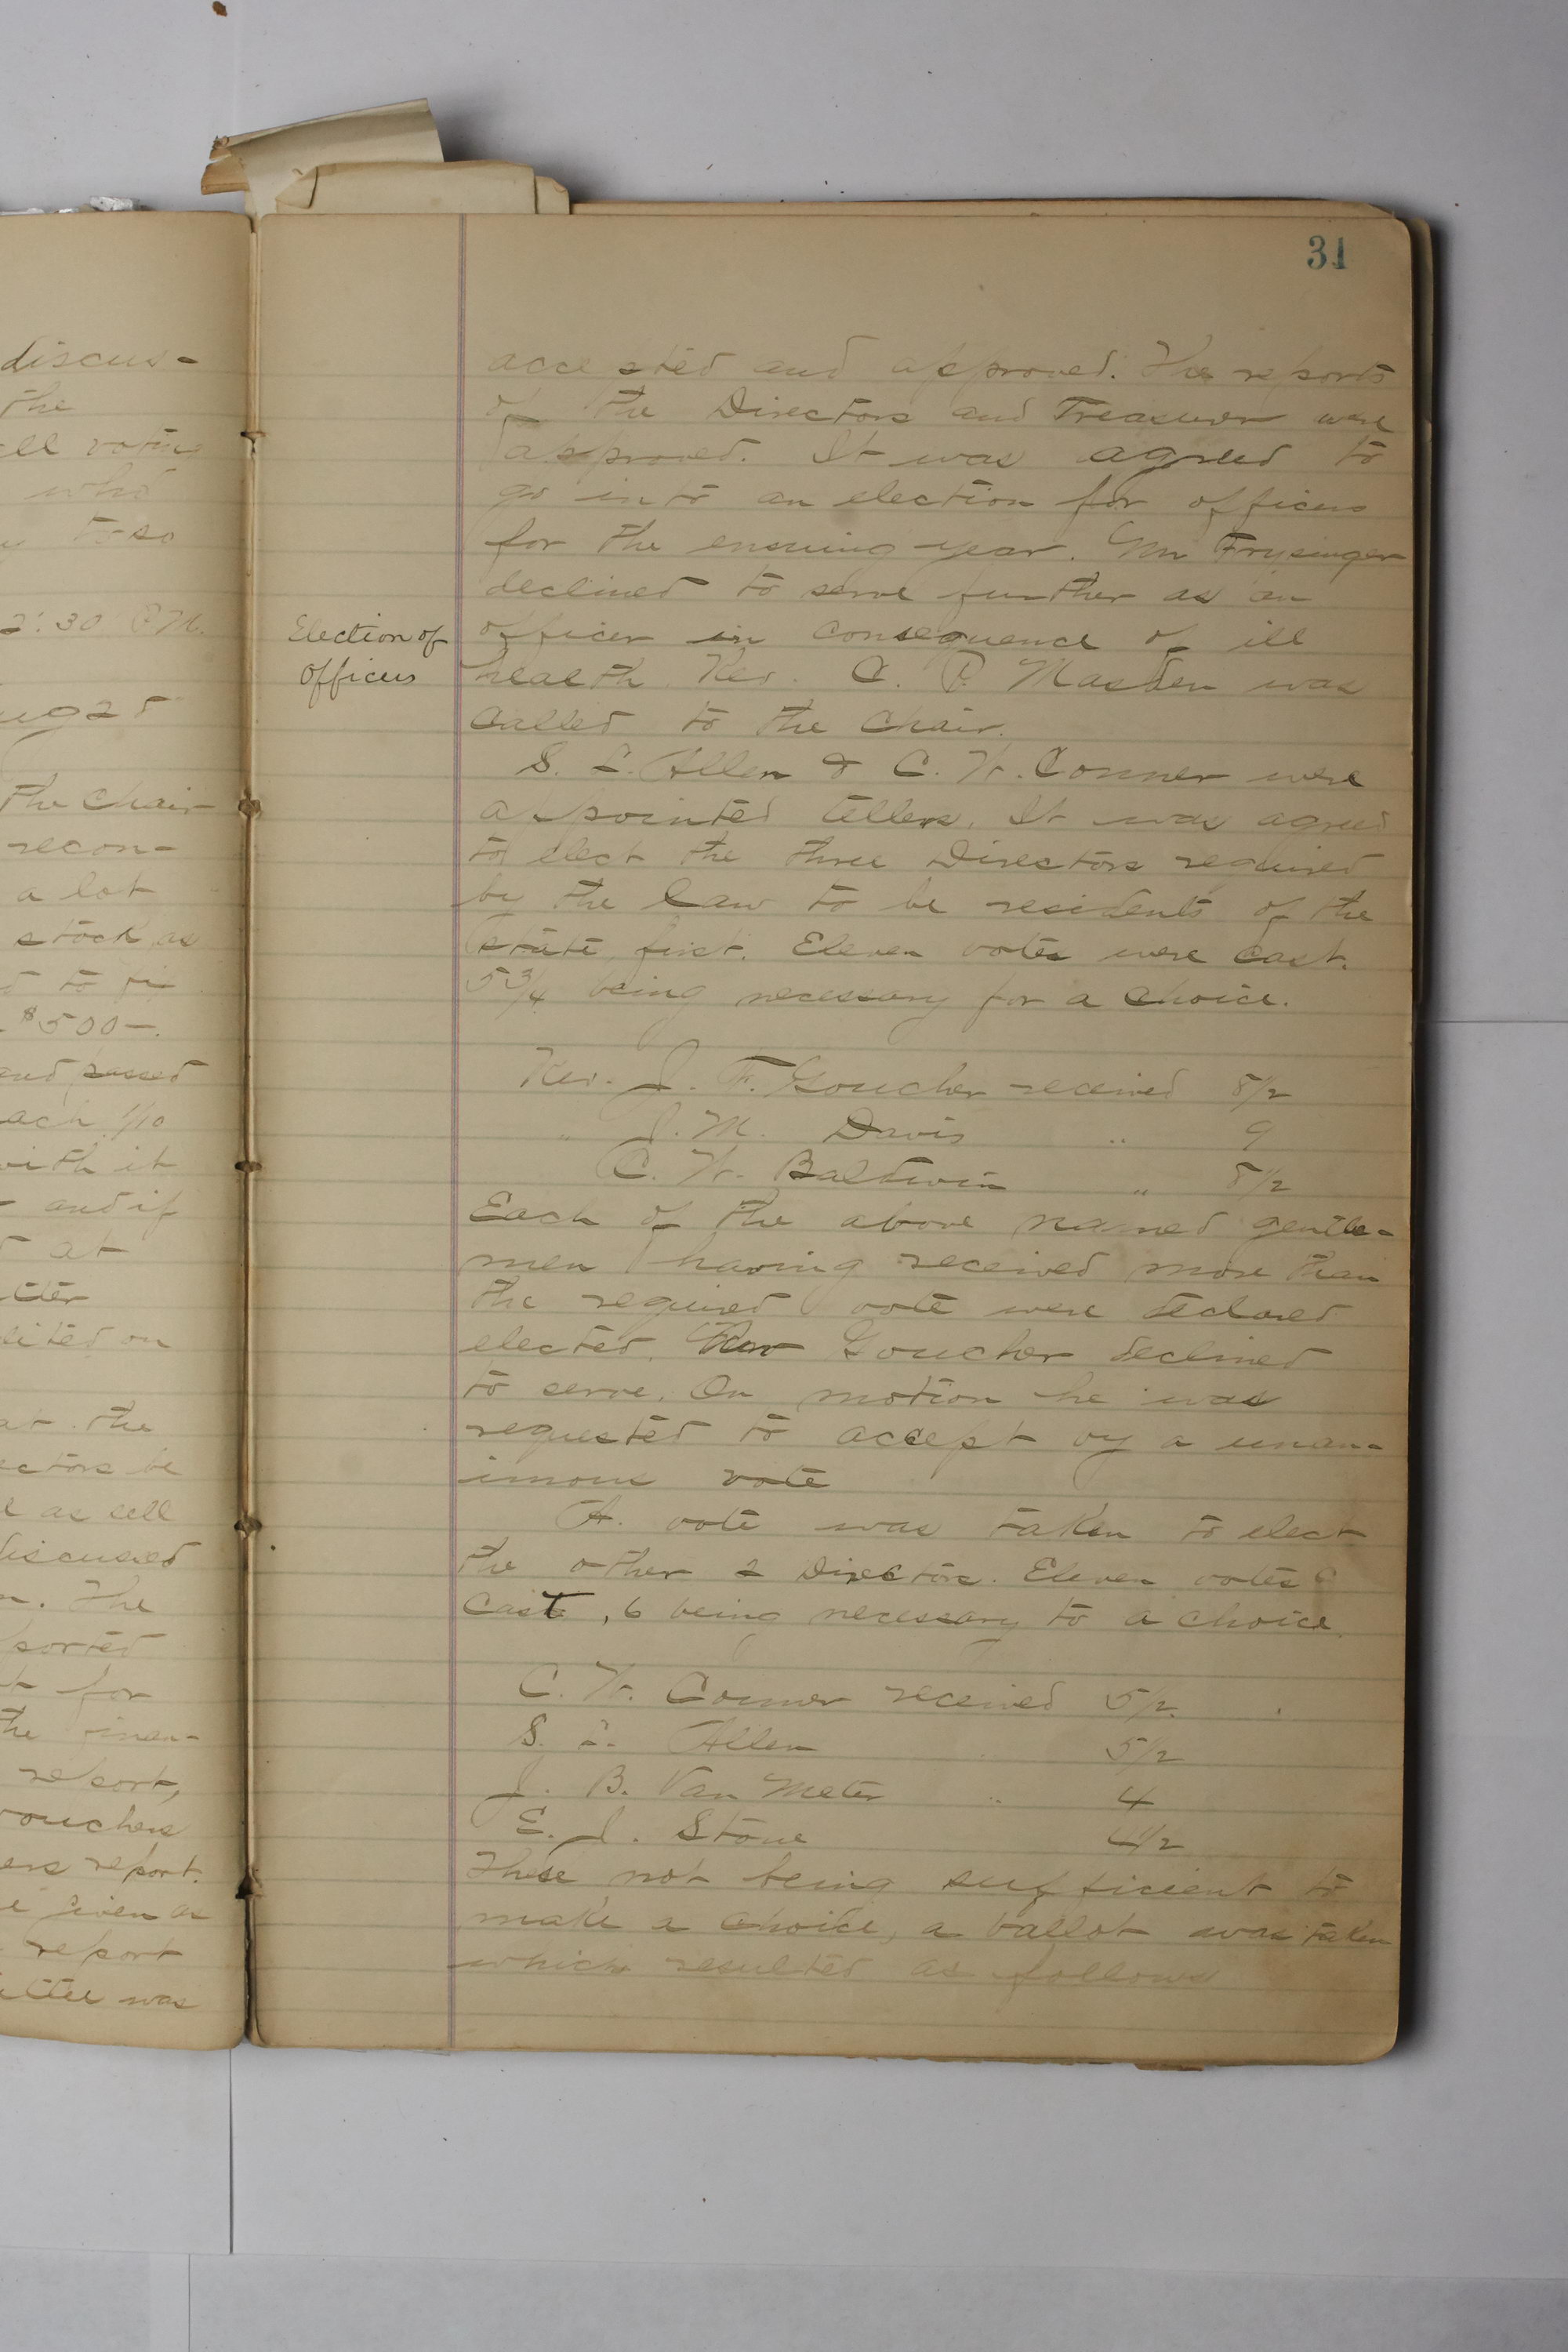 31
discus-
the
ell voting
who
to so
2:30 P.M.
the chair
recon-
a lot
stock as
$500-.
and passed
each 1/10
with it
and if
at
the
ctors be
as sell
discussed
The
ported
for
the
report,
vouchers
ers report.
given as
report
ittee was
Election of
Officers
accepted and approved. The reports
of the Directors and Treasurer were
approved. It was agreed to
go into an election for officers
for the ensuing year. Mr Frysinger
declined to serve further as an
officer in consequence of ill
health. Rev. C. P. Masden was
called to the Chair.
S. L. Allen & C. W. Conner were
appointed tellers. It was agreed
to elect the three Directors required
by the law to be residents of the
state, first. Eleven votes were cast.
5 3/4 being necessary for a choice.
Rev. J. F. Goucher received 8 1/2
" J. M. Davis " 9
C. W. Baldwin " 8 1/2
Each of the above named gentle-
men having received more than
the required vote were declared
elected. Goucher declined
to serve. On motion he was
requested to accept by a unan-
imous vote
A. vote was taken to elect
the other 2 Directors. Eleven votes
cast, 6 being necessary to a choice.
C. W. Conner received 5 1/2.
S. L. Allen 5 1/2
J. B. Van Meter " 4
E. J. Stone 4 1/2
These not being sufficient to
make a choice, a ballot was taken
which resulted as follows